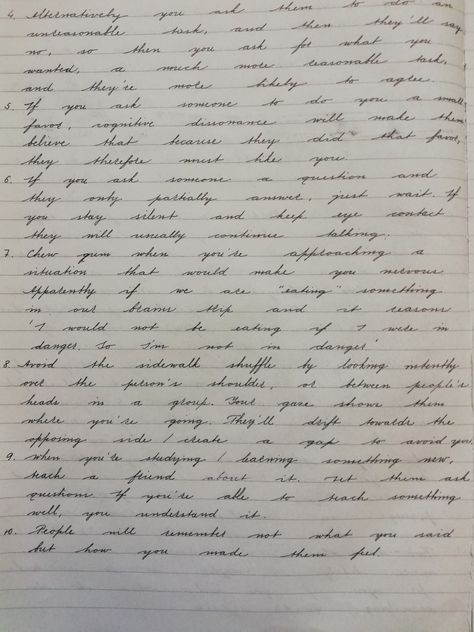 4. Alternatively you ask them to do an
unreasonable task, and then they'll say
no, so then you ask for what you
wanted, a much more reasonable task,
and they're more likely to agree.
5. If you ask someone to do you a small
favor, cognitive dissonance will make them
believe that because they did that favor,
they therefore must like you.
6. If you ask someone a question and
they only partially answer, just wait. If
you stay silent and keep eye contact
they will usually continue talking.
7. Chew gum when you're approaching a
situation that would make you nervous
Apparently if we are "eating" something
in our brains trip and it reasons
'I would not be eating if I were in
danger. So I'm not in danger.'
8. Avoid the sidewalk shuffle by looking intently
over the person's shoulder, or between people's
heads in a group. Your gaze shows them
where you're going. They'll drift towards the
opposing side / create a gap to avoid you.
9. When you're studying / learning something new,
teach a friend about it. Let them ask
questions. If you're able to teach something
well, you understand it.
10. People will remember not what you said
but how you made them feel.